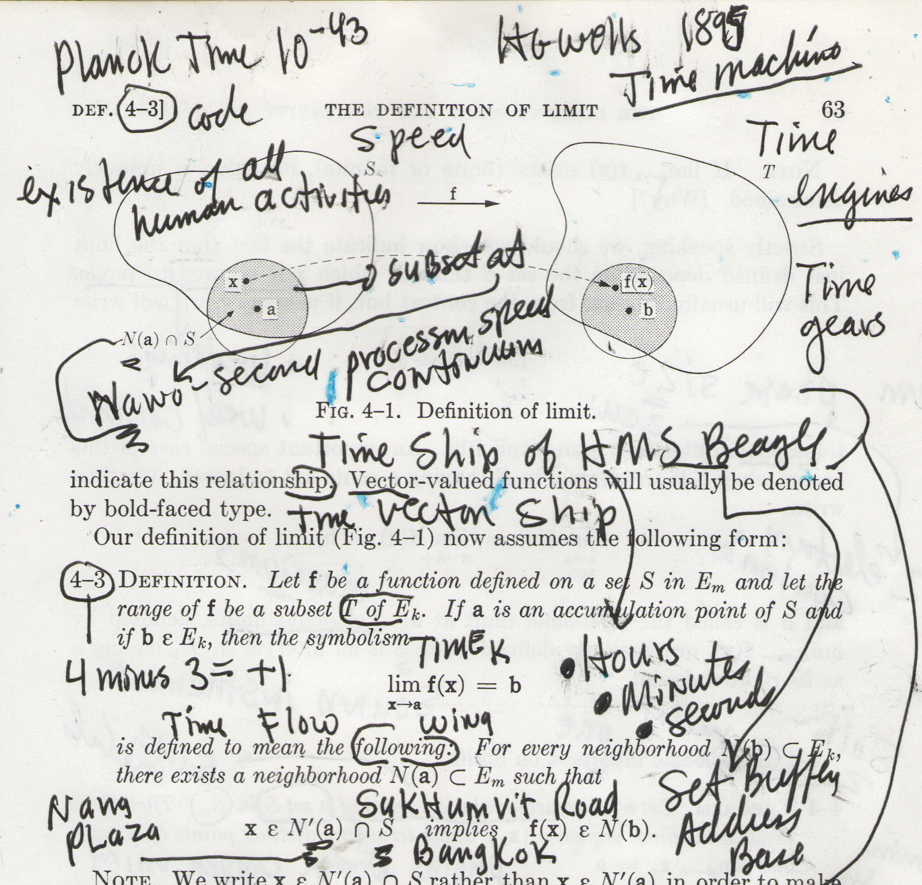 Planck Time 10-43
HG Wells 1895
Time machine
DEF. 4–3] code
THE DEFINITION OF LIMIT
63
Speed
Time
engines
existence of all
human activities
S
f
T
x
a
f(x)
b
subset at
Time
gears
N(a) ∩ S
Nano-second
processing speed
continuum
FIG. 4–1. Definition of limit.
Time Ship of HMS Beagle
indicate this relationship. Vector-valued functions will usually be denoted
by bold-faced type.
Time Vector Ship
Our definition of limit (Fig. 4–1) now assumes the following form:
4–3 DEFINITION. Let f be a function defined on a set S in Em and let the
range of f be a subset T of Ek. If a is an accumulation point of S and
if b ε Ek, then the symbolism
TIME K
4 minus 3 = +1
lim f(x) = b
x→a
• Hours
• Minutes
• seconds
Time Flow wing
is defined to mean the following: For every neighborhood N(b) ⊂ Ek,
there exists a neighborhood N(a) ⊂ Em such that
Nang
plaza
Sukhumvit Road
Bangkok
x ε N′(a) ∩ S implies f(x) ε N(b).
Set
Address
Base
NOTE. We write x ε N′(a) ∩ S rather than x ε N′(a) in order to make